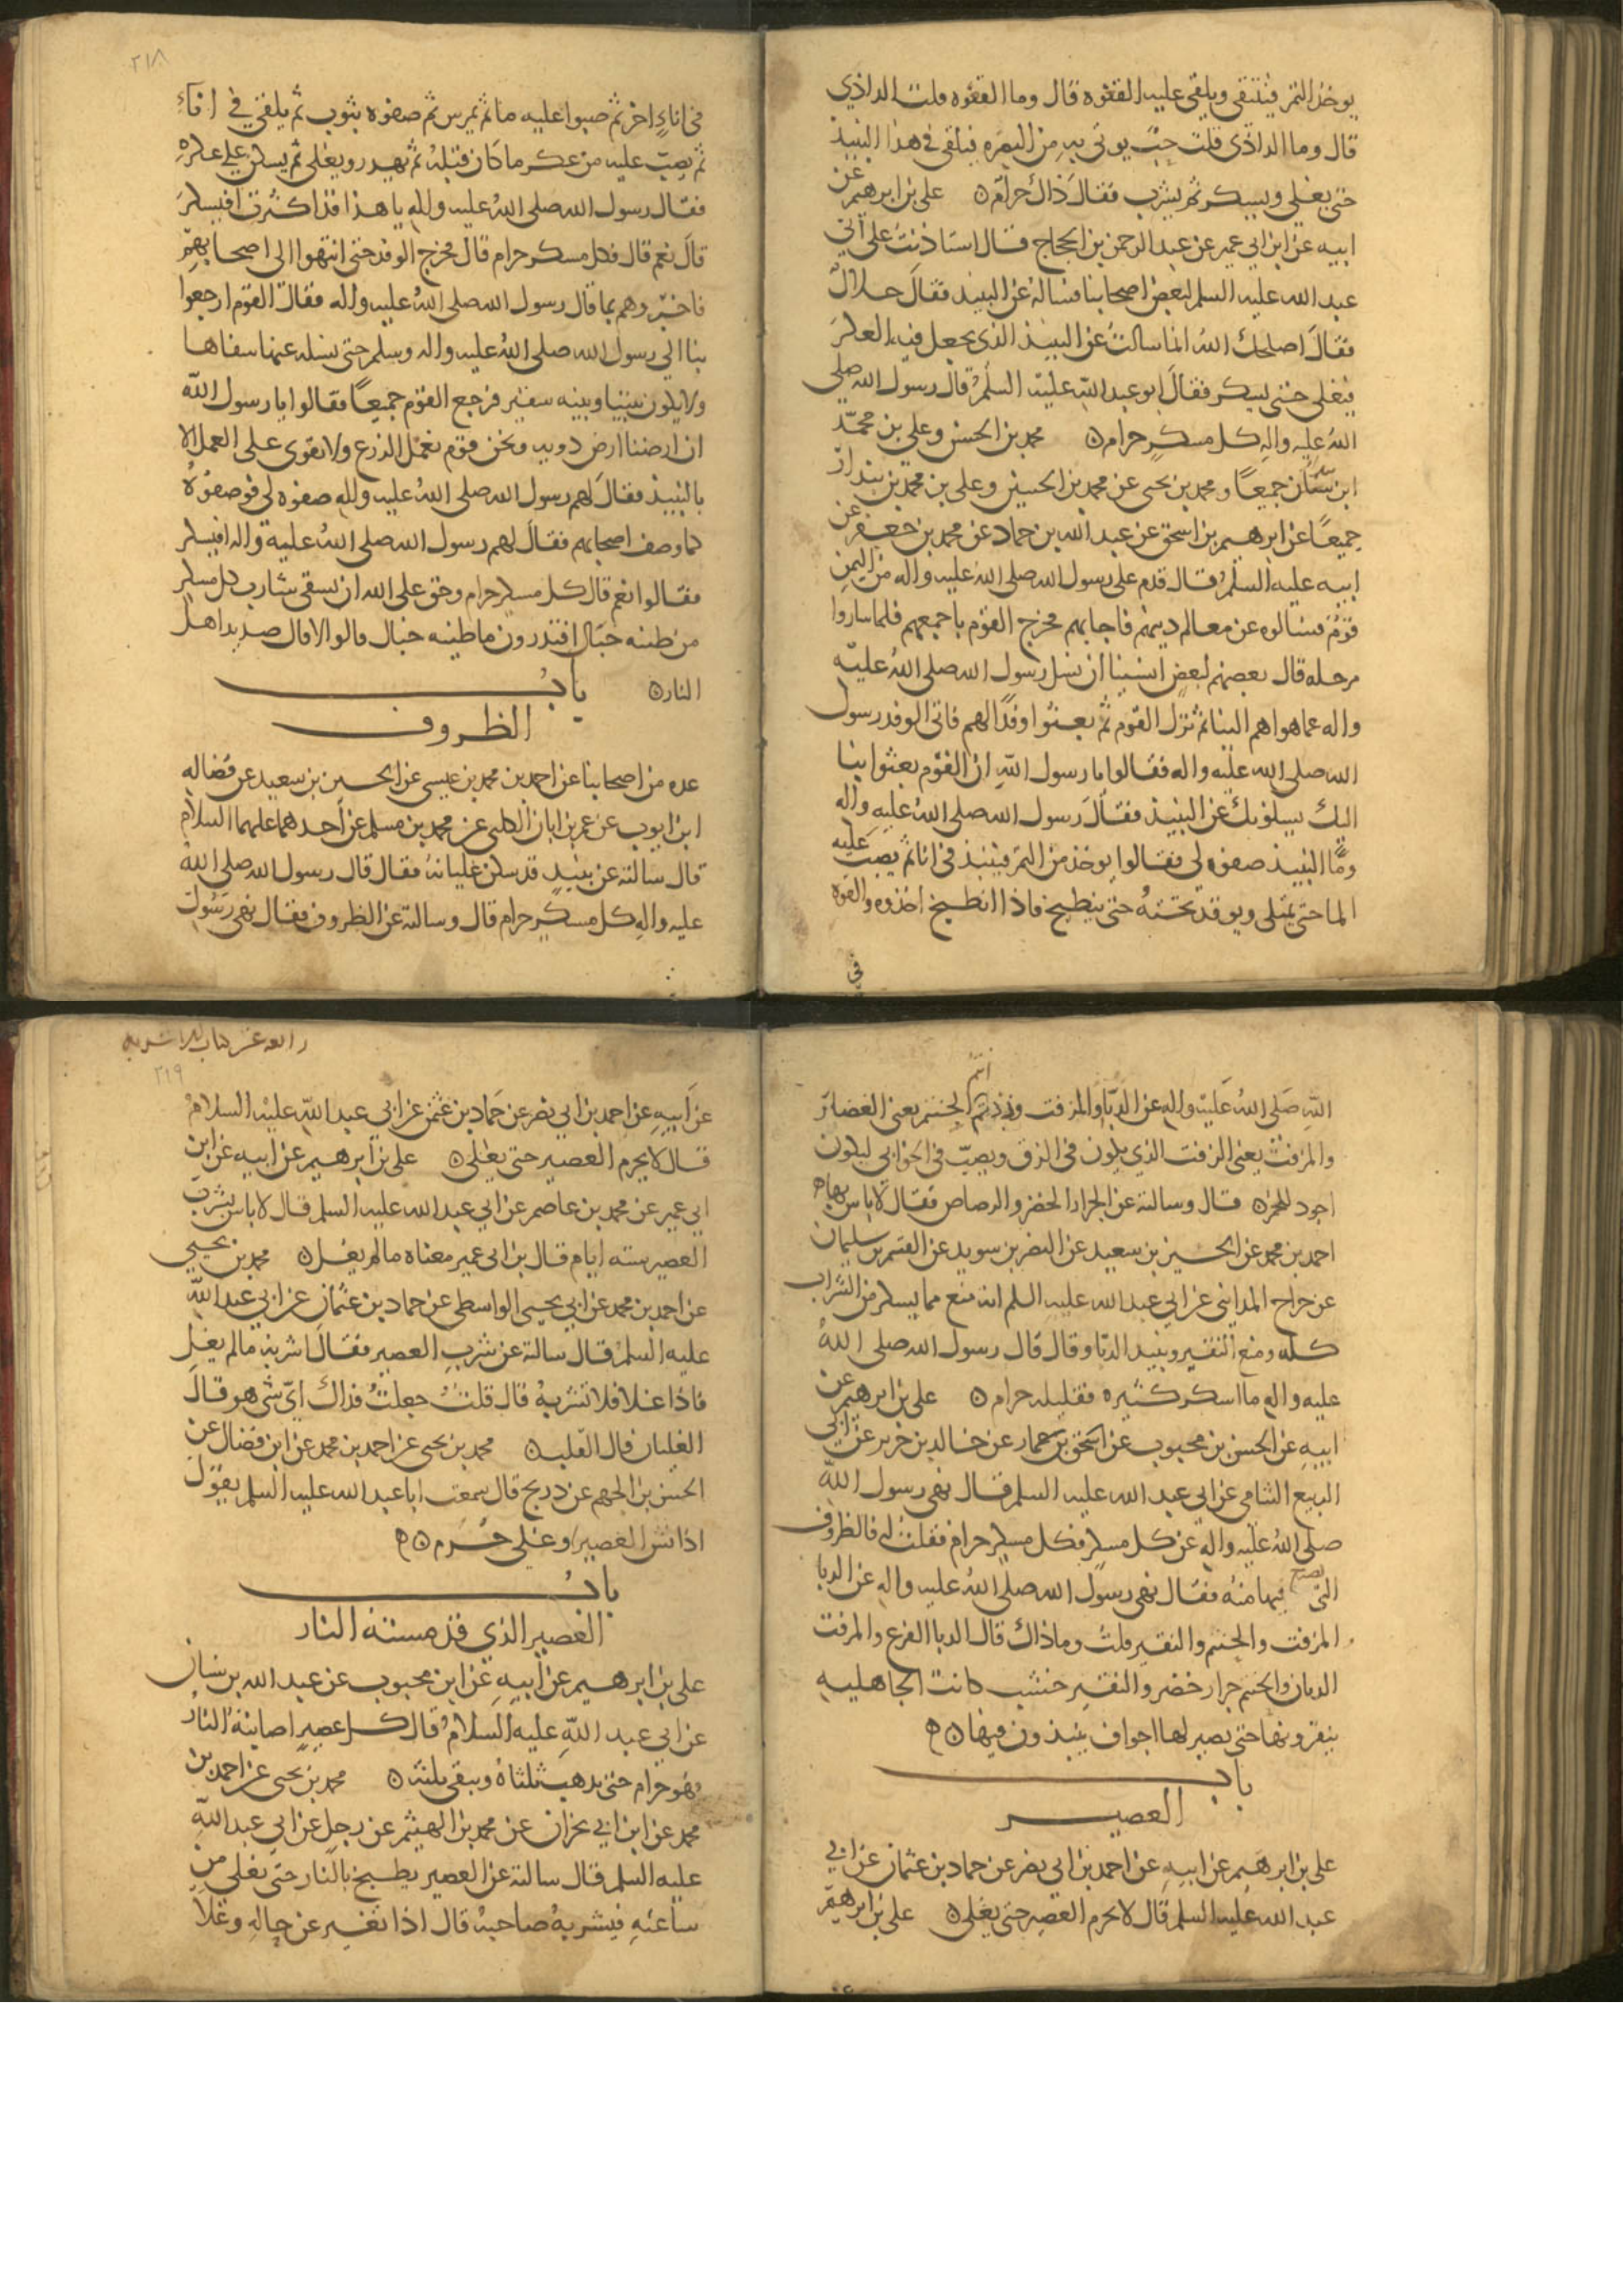 يوخذ التمر فينقى ويلقى عليه القعوه قال وما القعوه قلت الداذي
قال وما الداذى قلت حب يوتى به من البصره فيلقى فى هذا النبيذ
حتى يغلى ويسكر ثم يشرب فقال ذاك حرام ۞ على بن ابرهيم عن
ابيه عن ابن ابي عمير عن عبد الرحمن بن الحجاج قال استاذنت على ابي
عبد الله عليه السلم لبعض اصحابنا فساله عن النبيذ فقال حلال
فقال اصلحك الله انما سالت عن النبيذ الذى يجعل فيه العكر
فيغلى حتى يسكر فقال ابو عبد الله عليه السلم قال رسول الله صلى
الله عليه واله كل مسكر حرام ۞ محمد بن الحسن وعلى بن محمد
ابن بندار جميعا ومحمد بن يحيى عن محمد بن الحسين وعلى بن محمد بن بندار
جميعا عن ابرهيم بن اسحق عن عبد الله بن حماد عن محمد بن جعفر عن
ابيه عليه السلم قال قدم على رسول الله صلى الله عليه واله من اليمن
قوم فسالوه عن معالم دينهم فاجابهم فخرج القوم باجمعهم فلما ساروا
مرحله قال بعضهم لبعض انسينا ان نسل رسول الله صلى الله عليه
واله عما هو اهم الينا ثم نزل القوم ثم بعثوا وفدا لهم فاتى الوفد رسول
الله صلى الله عليه واله فقالوا يا رسول الله ان القوم بعثوا بنا
اليك يسلونك عن النبيذ فقال رسول الله صلى الله عليه واله
وما النبيذ صفوه لى فقالوا يوخذ من التمر فينبذ فى انا ثم يصب عليه
الما حتى يمتلى ويوقد تحته حتى ينطبخ فاذا انطبخ اخذوه والقوه
في
٢١٨
فى اناء اخر ثم صبوا عليه ما ثم يمرس ثم صفوه بثوب ثم يلقى في اناء
ثم يصب عليه من عكر ما كان قبله ثم يهدر ويغلى ثم يسكن على عكره
فقال رسول الله صلى الله عليه واله يا هذا قد اكثرت افيسكر
قال نعم قال فكل مسكر حرام قال فخرج الوفد حتى انتهوا الى اصحابهم
فاخبروهم بما قال رسول الله صلى الله عليه واله فقال القوم ارجعوا
بنا الى رسول الله صلى الله عليه واله وسلم حتى نسله عنها شفاها
ولا يكون بيننا وبينه سفير فرجع القوم جميعا فقالوا يا رسول الله
ان ارضنا ارض دويه ونحن قوم نعمل الزرع ولا نقوى على العمل الا
بالنبيذ فقال لهم رسول الله صلى الله عليه واله صفوه لى فوصفوه
كما وصف اصحابهم فقال لهم رسول الله صلى الله عليه واله افيسكر
فقالوا نعم قال كل مسكر حرام وحق على الله ان يسقى شارب كل مسكر
من طينه خبال افتدرون ما طينه خبال قالوا لا قال صديد اهل
النار ۞ باب
الظروف
عده من اصحابنا عن احمد بن محمد بن عيسى عن الحسين بن سعيد عن فضاله
ابن ايوب عن عمر بن ابان الكلبى عن محمد بن مسلم عن احدهما عليهما السلام
قال سالته عن نبيذ قد سكن غليانه فقال قال رسول الله صلى الله
عليه واله كل مسكر حرام قال وسالته عن الظروف فقال نهى رسول
الله صلى الله عليه واله عن الدبا والمزفت وزدتم انتم الحنتم يعنى الغضار
والمزفت يعنى الزفت الذي يكون فى الزق ويصب فى الخوابى ليكون
اجود للخمر ۞ قال وسالته عن الجرار الخضر والرصاص فقال لا باس بها ۞
احمد بن محمد عن الحسين بن سعيد عن النضر بن سويد عن القسم بن سليمان
عن جراح المدايني عن ابي عبد الله عليه السلم انه منع مما يسكر من الشراب
كله ومنع النقير ونبيذ الدبا وقال قال رسول الله صلى الله
عليه واله ما اسكر كثيره فقليله حرام ۞ على بن ابرهيم عن
ابيه عن الحسن بن محبوب عن اسحق بن عمار عن خالد بن جرير عن ابى
الربيع الشامى عن ابي عبد الله عليه السلم قال نهى رسول الله
صلى الله عليه واله عن كل مسكر فكل مسكر حرام فقلت له فالظروف
التى يصنع فيها منه فقال نهى رسول الله صلى الله عليه واله عن الدبا
والمزفت والحنتم والنقير قلت وما ذاك قال الدبا القرع والمزفت
الدنان والحنتم جرار خضر والنقير خشب كانت الجاهليه
ينقرونها حتى يصير لها اجواف ينبذون فيها ۞
باب
العصير
على بن ابرهيم عن ابيه عن احمد بن ابي نصر عن حماد بن عثمان عن ابي
عبد الله عليه السلم قال لا يحرم العصير حتى يغلى ۞ على بن ابرهيم
عن
٢١٩
عن ابيه عن احمد بن ابي نصر عن حماد بن عثمن عن ابي عبد الله عليه السلام
قال لا يحرم العصير حتى يغلى ۞ على بن ابرهيم عن ابيه عن ابن
ابي عمير عن محمد بن عاصم عن ابي عبد الله عليه السلم قال لا باس بشرب
العصير سته ايام قال بن ابى عمير معناه ما لم يغل ۞ محمد بن يحيى
عن احمد بن محمد عن ابي يحيى الواسطى عن حماد بن عثمان عن ابي عبد الله
عليه السلم قال سالته عن شرب العصير فقال اشربه ما لم يغل
فاذا غلا فلا تشربه قال قلت جعلت فداك اى شى هو قال
الغليان قال القلب ۞ محمد بن يحيى عن احمد بن محمد عن ابن فضال عن
الحسن بن الجهم عن ذريح قال سمعت ابا عبد الله عليه السلم يقول
اذا نش العصير او غلى حرم ۞
باب
العصير الذي قد مسته النار
على بن ابرهيم عن ابيه عن ابن محبوب عن عبد الله بن سنان
عن ابي عبد الله عليه السلام قال كل عصير اصابته النار
فهو حرام حتى يذهب ثلثاه ويبقى ثلثه ۞ محمد بن يحيى عن احمد بن
محمد عن ابن ابي نجران عن محمد بن الهيثم عن رجل عن ابي عبد الله
عليه السلم قال سالته عن العصير يطبخ بالنار حتى يغلى من
ساعته فيشربه صاحبه قال اذا تغير عن حاله وغلا